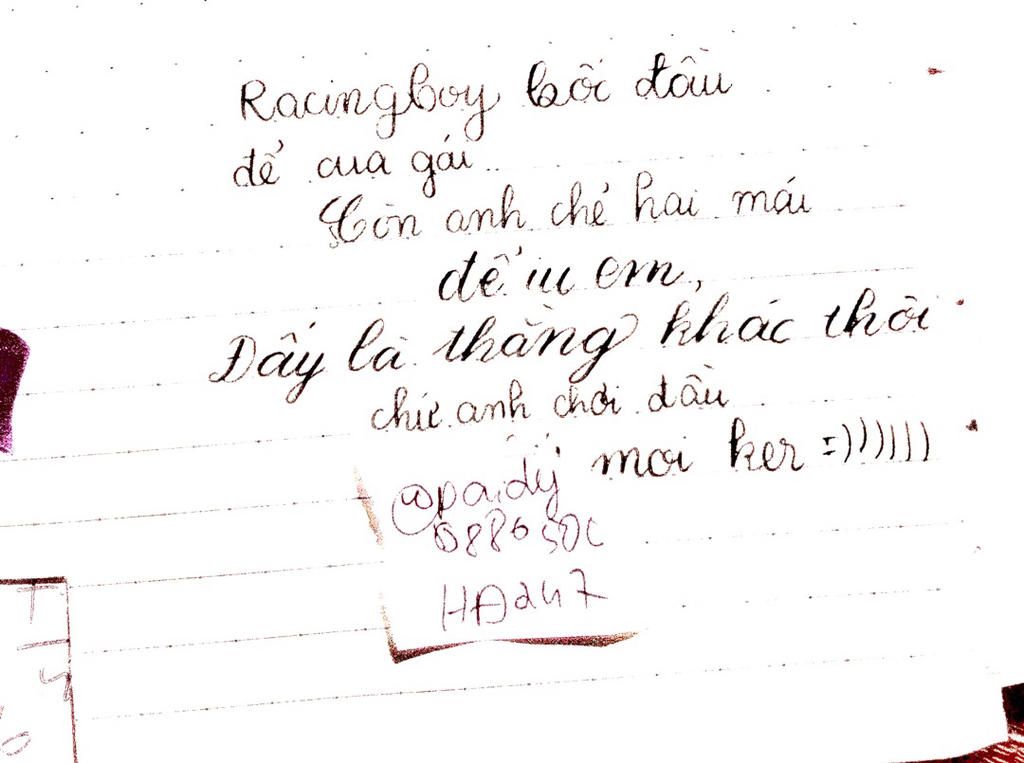 Racingboy bốc đầu
để cua gái..
Còn anh chẻ hai mái
để iu em,
Đấy là thằng khác thôi
chứ anh chơi đâu
mơi ker =))))))
HA247